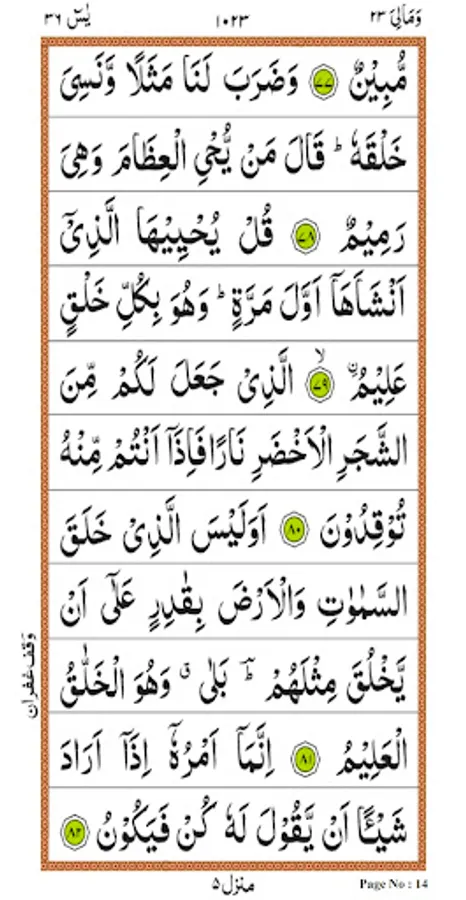 وَمَالِیَ ٢٣ ١٠٢٣ یٰسٓ ٣٦
مُّبِیْنٌ ﴿٧٧﴾ وَضَرَبَ لَنَا مَثَلًا وَّنَسِیَ
خَلْقَهٗ ؕ قَالَ مَنْ یُّحْیِ الْعِظَامَ وَهِیَ
رَمِیْمٌ ﴿٧٨﴾ قُلْ یُحْیِیْهَا الَّذِیْۤ
اَنْشَاَهَاۤ اَوَّلَ مَرَّةٍ ؕ وَهُوَ بِكُلِّ خَلْقٍ
عَلِیْمُ ۨۙ ﴿٧٩﴾ الَّذِیْ جَعَلَ لَكُمْ مِّنَ
الشَّجَرِ الْاَخْضَرِ نَارًا فَاِذَاۤ اَنْتُمْ مِّنْهُ
تُوْقِدُوْنَ ﴿٨٠﴾ اَوَلَیْسَ الَّذِیْ خَلَقَ
السَّمٰوٰتِ وَالْاَرْضَ بِقٰدِرٍ عَلٰۤی اَنْ
یَّخْلُقَ مِثْلَهُمْ ؕ بَلٰی ۗ وَهُوَ الْخَلّٰقُ
وقف غفران
الْعَلِیْمُ ﴿٨١﴾ اِنَّمَاۤ اَمْرُهٗۤ اِذَاۤ اَرَادَ
شَیْـًٔا اَنْ یَّقُوْلَ لَهٗ كُنْ فَیَكُوْنُ ﴿٨٢﴾
منزل ٥ Page No : 14